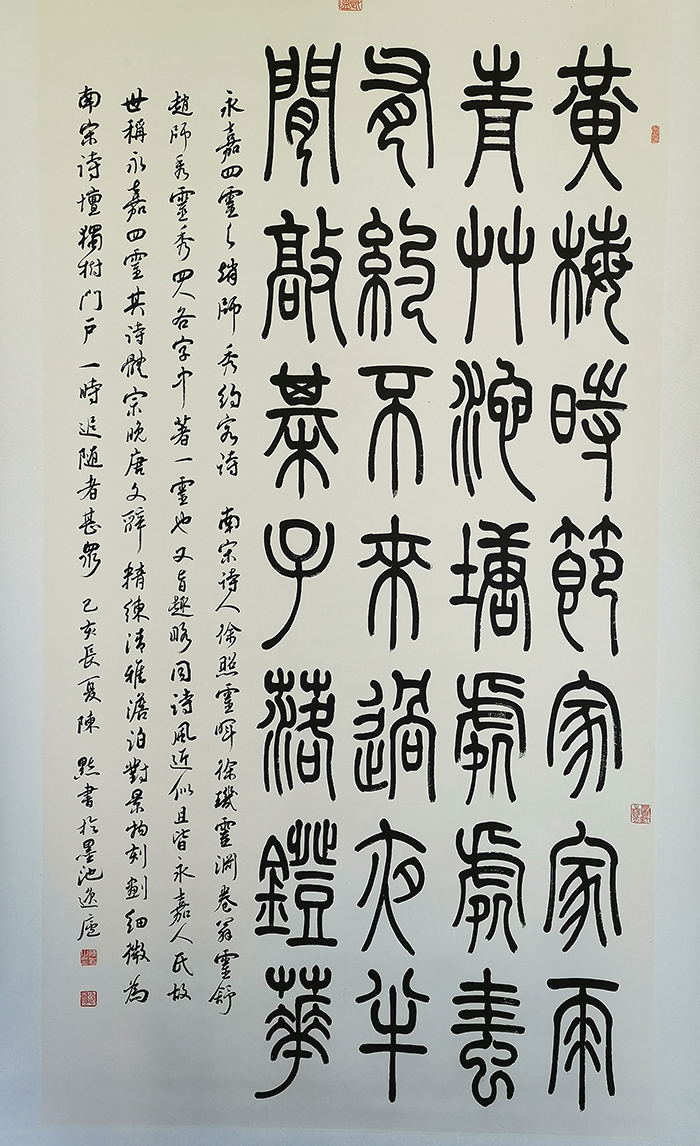 黄梅時節家家雨
青艸池塘處處蛙
有約不來過夜半
閒敲棊子落鐙華
永嘉四靈之趙師秀約客詩 南宋诗人徐照靈晖徐璣靈渊卷翁靈舒
趙師秀靈秀四人各字中著一靈也又旨趣略同诗風近似且皆永嘉人氏故
世稱永嘉四靈其诗體宗晚唐文辭精練清雅澹泊對景物刻劃细微為
南宋诗壇獨樹门户一時追随者甚眾 己亥長夏陳默書於墨池逸廬